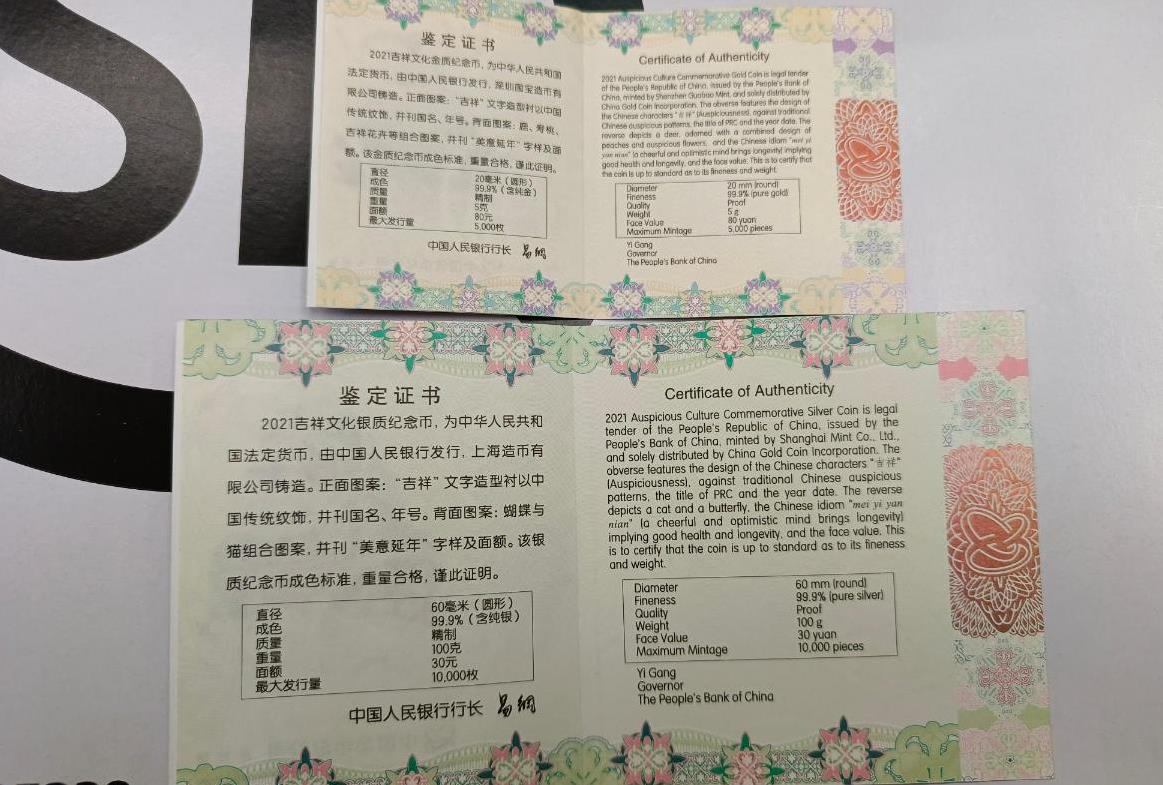 鉴定证书
2021吉祥文化金质纪念币，为中华人民共和国
法定货币，由中国人民银行发行，深圳国宝造币有
限公司铸造。正面图案：“吉祥”文字造型衬以中国
传统纹饰，并刊国名、年号。背面图案：鹿、寿桃、
吉祥花卉等组合图案，并刊“美意延年”字样及面
额。该金质纪念币成色标准，重量合格，谨此证明。
直径 20毫米（圆形）
成色 99.9%（含纯金）
质量 精制
重量 5克
面额 80元
最大发行量 5,000枚
中国人民银行行长 易纲
Certificate of Authenticity
2021 Auspicious Culture Commemorative Gold Coin is legal tender
of the People's Republic of China, issued by the People's Bank of
China, minted by Shenzhen Guobao Mint, and solely distributed by
China Gold Coin Incorporation. The obverse features the design of
the Chinese characters "吉祥" (Auspiciousness), against traditional
Chinese auspicious patterns, the title of PRC and the year date. The
reverse depicts a deer, adorned with a combined design of
peaches and auspicious flowers, and the Chinese idiom "mei yi
yan nian" (a cheerful and optimistic mind brings longevity) implying
good health and longevity, and the face value. This is to certify that
the coin is up to standard as to its fineness and weight.
Diameter 20 mm (round)
Fineness 99.9% (pure gold)
Quality Proof
Weight 5 g
Face Value 80 yuan
Maximum Mintage 5,000 pieces
Yi Gang
Governor
The People's Bank of China
鉴定证书
2021吉祥文化银质纪念币，为中华人民共和
国法定货币，由中国人民银行发行，上海造币有
限公司铸造。正面图案：“吉祥”文字造型衬以中
国传统纹饰，并刊国名、年号。背面图案：蝴蝶与
猫组合图案，并刊“美意延年”字样及面额。该银
质纪念币成色标准，重量合格，谨此证明。
直径 60毫米（圆形）
成色 99.9%（含纯银）
质量 精制
重量 100克
面额 30元
最大发行量 10,000枚
中国人民银行行长 易纲
Certificate of Authenticity
2021 Auspicious Culture Commemorative Silver Coin is legal
tender of the People's Republic of China, issued by the
People's Bank of China, minted by Shanghai Mint Co., Ltd.,
and solely distributed by China Gold Coin Incorporation. The
obverse features the design of the Chinese characters "吉祥"
(Auspiciousness), against traditional Chinese auspicious
patterns, the title of PRC and the year date. The reverse
depicts a cat and a butterfly, the Chinese idiom "mei yi yan
nian" (a cheerful and optimistic mind brings longevity)
implying good health and longevity, and the face value. This
is to certify that the coin is up to standard as to its fineness
and weight.
Diameter 60 mm (round)
Fineness 99.9% (pure silver)
Quality Proof
Weight 100 g
Face Value 30 yuan
Maximum Mintage 10,000 pieces
Yi Gang
Governor
The People's Bank of China